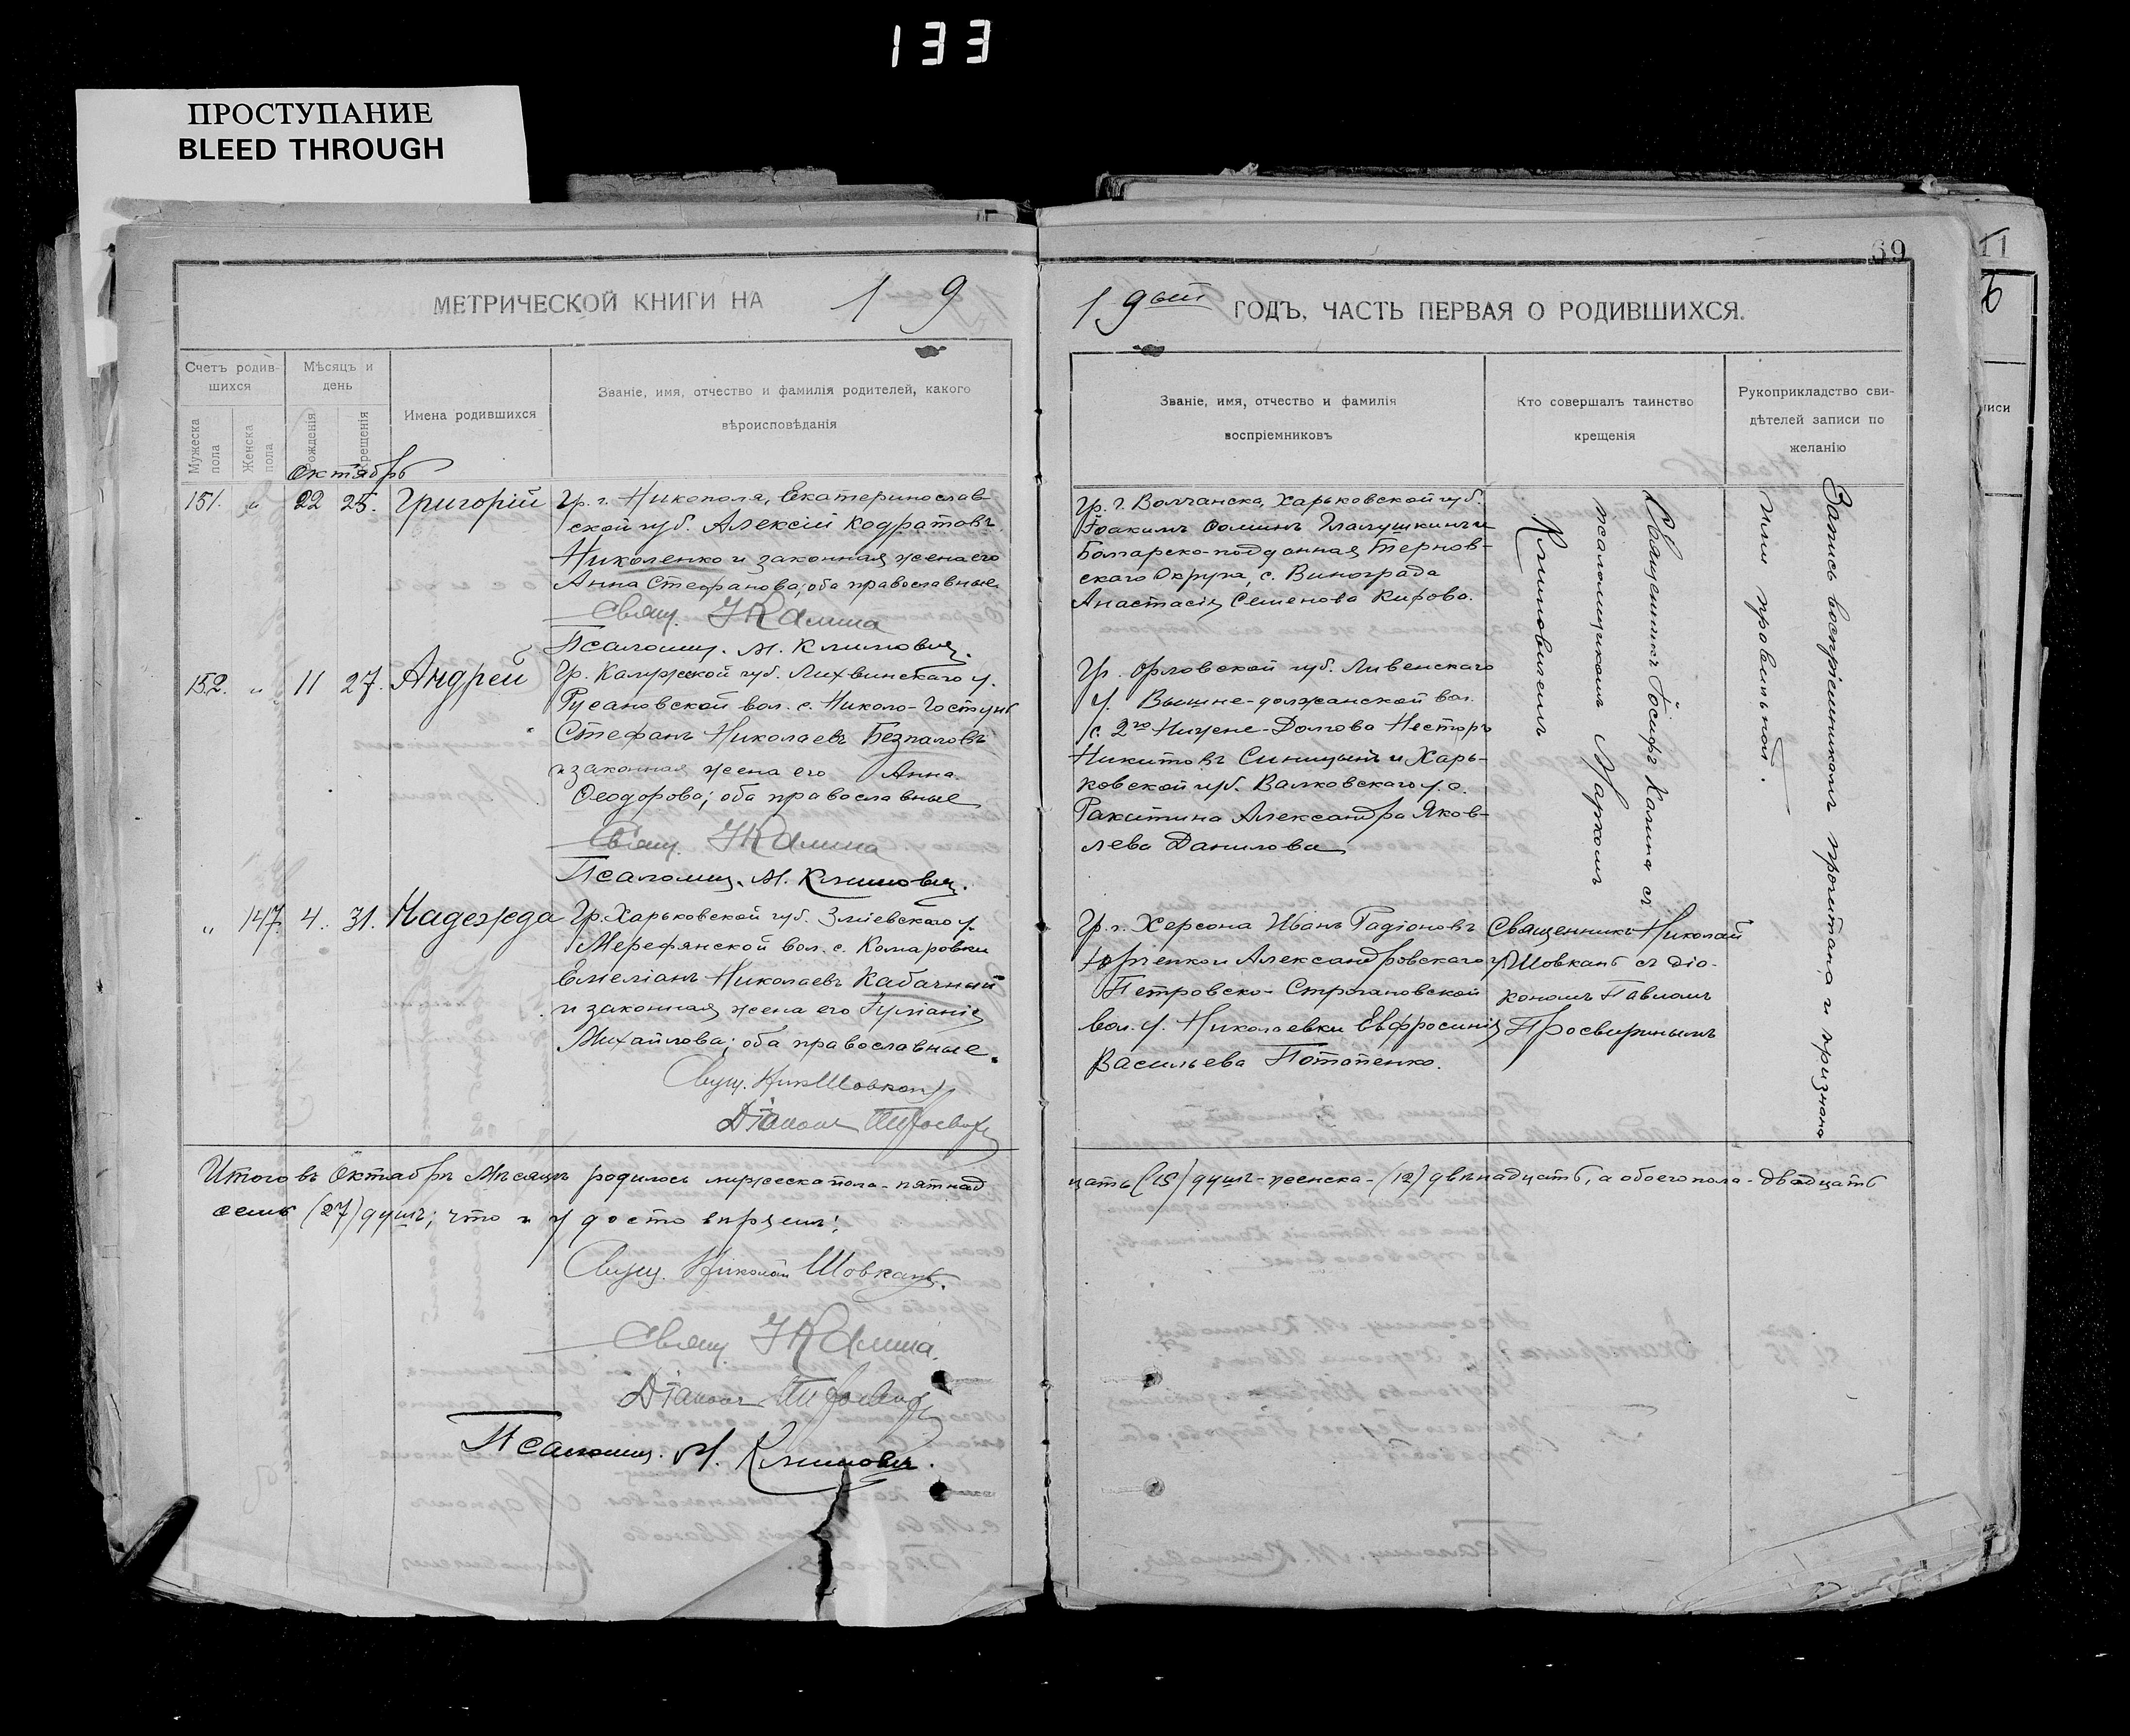 133
ПРОСТУПАНИЕ
BLEED THROUGH
69
МЕТРИЧЕСКОЙ КНИГИ НА 19
19 ГОДЪ, ЧАСТЬ ПЕРВАЯ О РОДИВШИХСЯ.
Счетъ родив-
шихся
Мужеска пола
Женска пола
Мѣсяцъ и
день
Рожденія
Крещенія
Имена родившихся
Званіе, имя, отчество и фамилія родителей, какого
вѣроисповѣданія
Званіе, имя, отчество и фамилія
воспріемниковъ
Кто совершалъ таинство
крещенія
Рукоприкладство сви-
дѣтелей записи по
желанію
Октябрь
151. " 22 25. Григорій
Гр. г. Никополя, Екатеринослав-
ской губ. Алексій Кодратовъ
Николенко и законная жена его
Анна Стефанова; оба православные
Свящ. І Калина
Псаломщ. М. Климовичъ.
Гр. г. Волчанска, Харьковской губ.
Іоакимъ Ѳоминъ и
Болгарско-подданная Тернов-
скаго Округа, с. Винограда
Анастасія Семенова Кирова.
152. " 11 27. Андрей
Гр. Калужской губ. Лихвинскаго у.
Русановской вол. с. Николо-Гостунь
Стефанъ Николаевъ Безпаловъ
и законная жена его Анна
Ѳеодорова; оба православные
Свящ. І Калина
Псаломщ. М. Климовичъ.
Гр. Орловской губ. Ливенскаго
у. Вышне-должанской вол.
с. 2го Нижне-Долгова Несторъ
Никитовъ Синицынъ и Харь-
ковской губ. Валковскаго у. с.
Ракитина Александра Яков-
лева Данилова
Священникъ Іосифъ Калина съ
псаломщикомъ Маркомъ
Климовичемъ
Запись воспріемникамъ прочитана и признана
ими правильной.
" 147. 4. 31. Надежда
Гр. Харьковской губ. Зміевскаго у.
Мерефянской вол. с. Комаровки
Емеліанъ Николаевъ Кабачный
и законная жена его Іуліанія
Михайлова; оба православные.
Свящ. Ник Шовкань
Діаконъ
Гр. г. Херсона Иванъ Радіоновъ
Юрченко и Александровскаго у.
Петровско-Строгановской
вол. у. Николаевки Евфросинія
Васильева Потопенко.
Священникъ Николай
Шовкань съ діа-
кономъ Павломъ
Просвиринымъ
Итого въ Октябрѣ мѣсяцѣ родилось мужеска пола - пятнад
цать (15) душъ - женска - (12) двѣнадцать, а обоего пола - двадцать
семь (27) душъ; что и удостовѣряемъ:
Свящ. Николай Шовкань.
Свящ. І Калина.
Діаконъ
Псаломщ. М. Климовичъ.